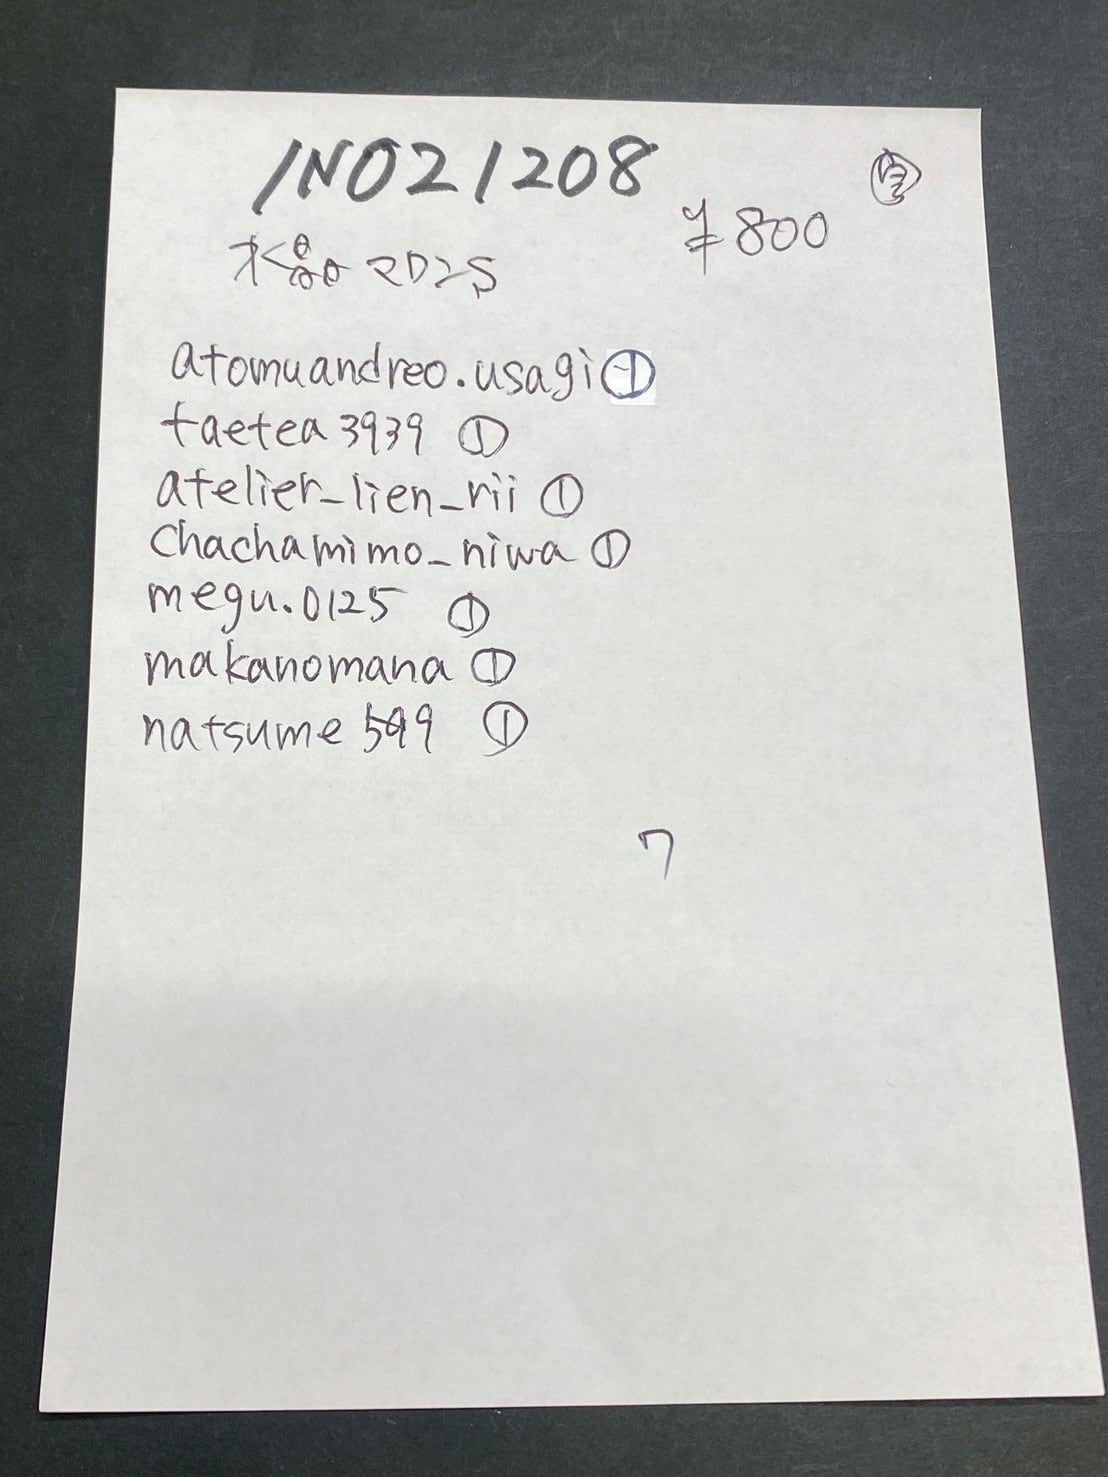 INO21208
¥800
水晶2025
atomuandreo.usagi①
taetea3939 ①
atelier_lien_rii ①
chachamimo_niwa ①
megu.0125 ①
makanomana ①
natsume599 ①
7